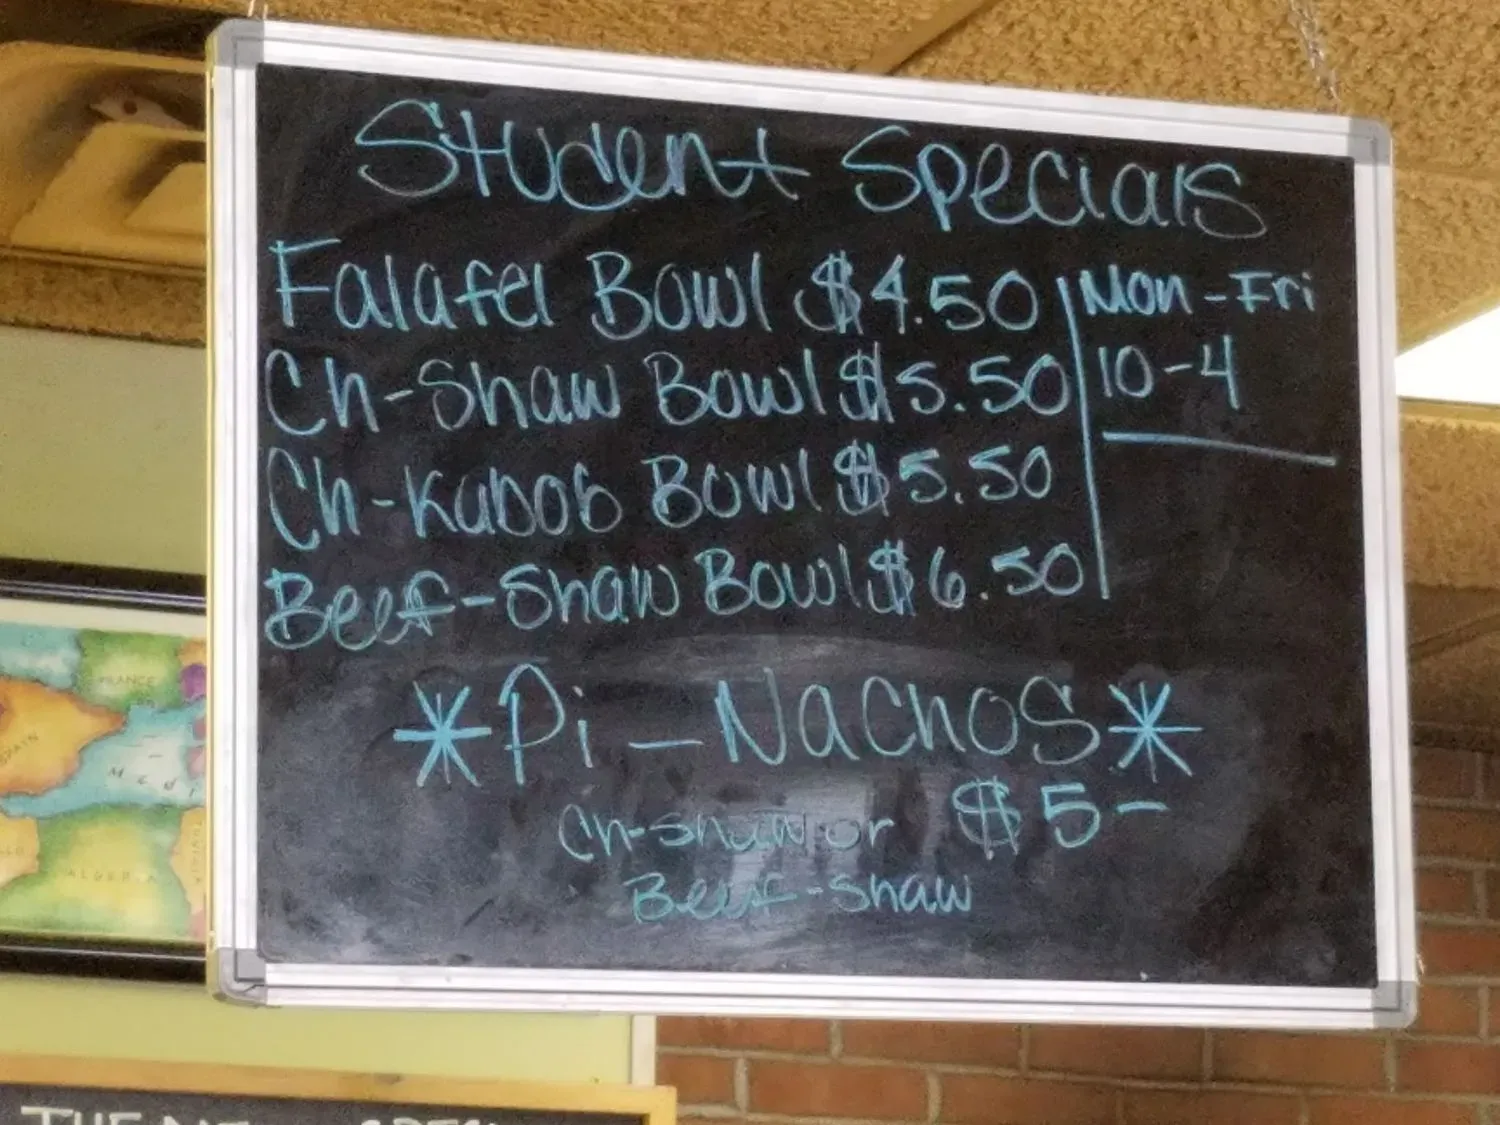 Student Specials
Falafel Bowl $4.50
Mon-Fri
10-4
Ch-Shaw Bowl $5.50
Ch-Kabob Bowl $5.50
Beef-Shaw Bowl $6.50
*Pi-Nachos*
Ch-Shaw or $5-
Beef-Shaw
FRANCE
SPAIN
Medi
ALGERIA
THE